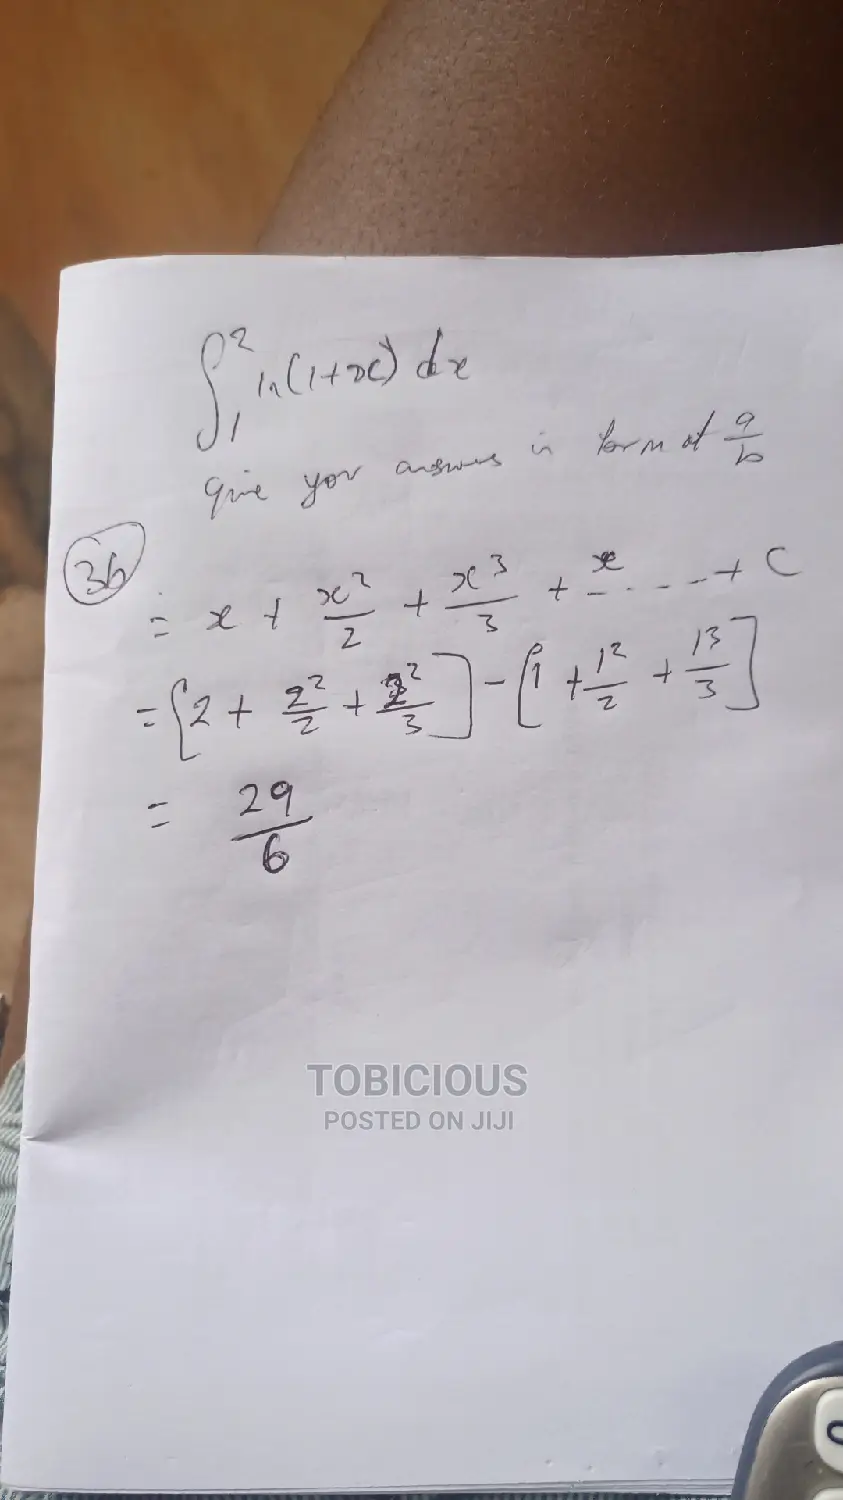 ∫₁² ln(1+x) dx
give you answers in form of a/b
36
= x + x²/2 + x³/3 + x ... + C
= [2 + 2²/2 + 2²/3] - [1 + 1²/2 + 13/3]
= 29/6
TOBICIOUS
POSTED ON JIJI